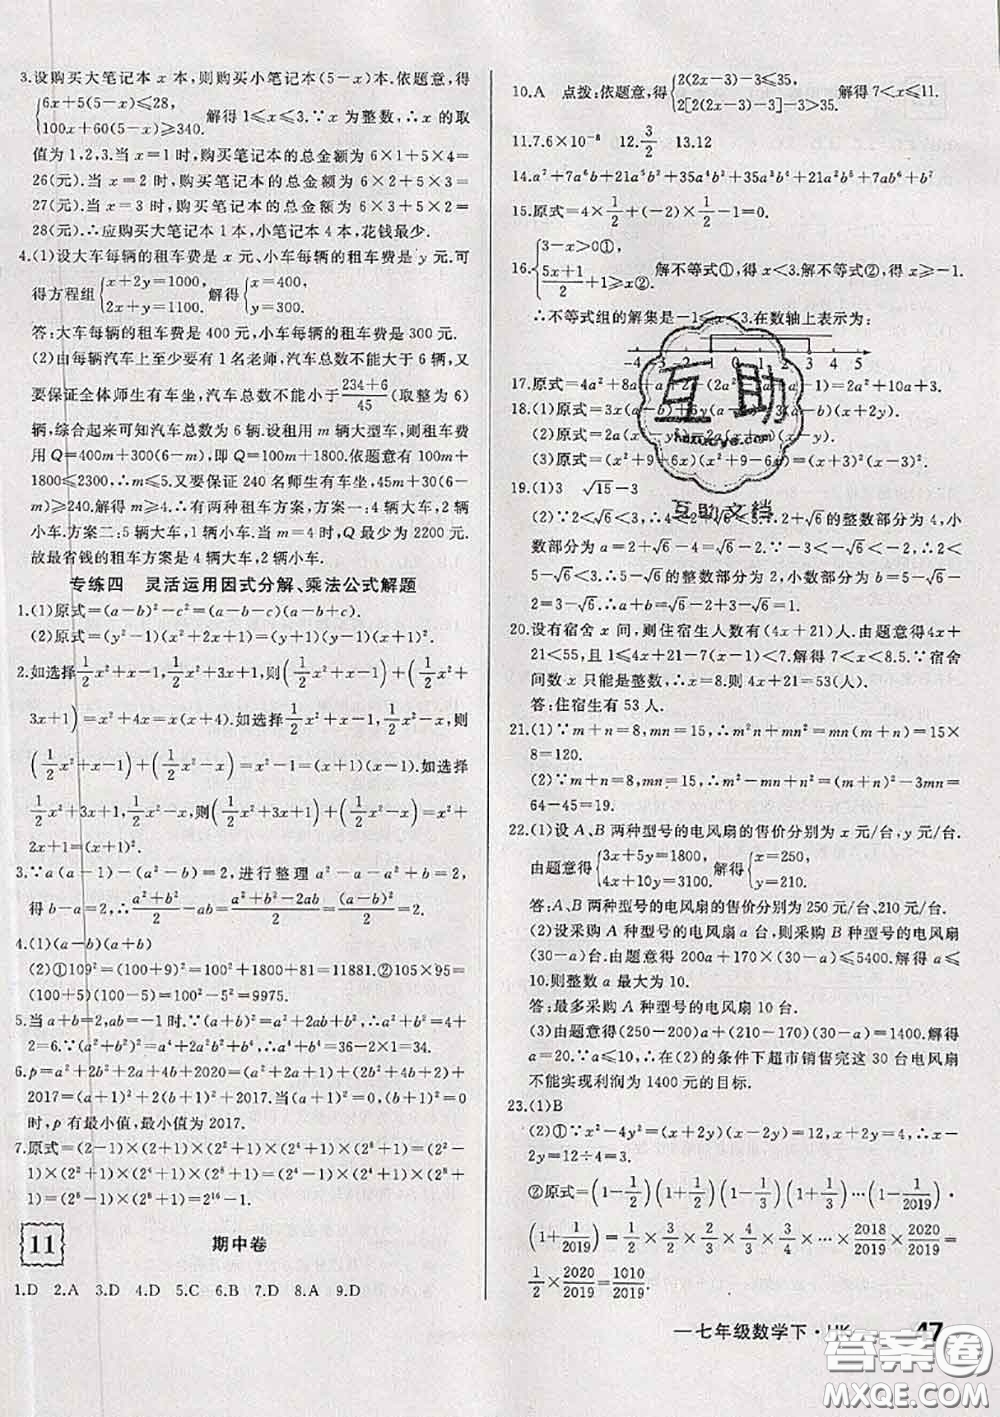 3.设购买大笔记本 x 本,则购买小笔记本(5-x)本.依题意,得
{6x+5(5-x)≤28,
100x+60(5-x)≥340. 解得 1≤x≤3.∵x 为整数,∴x 的取
值为 1,2,3.当 x=1 时,购买笔记本的总金额为 6×1+5×4=
26(元).当 x=2 时,购买笔记本的总金额为 6×2+5×3=
27(元).当 x=3 时,购买笔记本的总金额为 6×3+5×2=
28(元).∴应购买大笔记本 1 本,小笔记本 4 本,花钱最少.
4.(1)设大车每辆的租车费是 x 元、小车每辆的租车费是 y 元.可
得方程组{x+2y=1000, 2x+y=1100. 解得{x=400, y=300.
答:大车每辆的租车费是 400 元,小车每辆的租车费是 300 元.
(2)由每辆汽车上至少要有 1 名老师,汽车总数不能大于 6 辆,又
要保证全体师生有车坐,汽车总数不能小于(234+6)/45(取整为 6)
辆,综合起来可知汽车总数为 6 辆.设租用 m 辆大型车,则租车费
用 Q=400m+300(6-m),即 Q=100m+1800.依题意有 100m+
1800≤2300,∴m≤5.又要保证 240 名师生有车坐,45m+30(6-
m)≥240.解得 m≥4.∴有两种租车方案,方案一:4 辆大车,2 辆
小车.方案二:5 辆大车,1 辆小车.∴当 m=4 时,Q最少为 2200 元.
故最省钱的租车方案是 4 辆大车,2 辆小车.
专练四 灵活运用因式分解、乘法公式解题
1.(1)原式=(a-b)²-c²=(a-b-c)(a-b+c).
(2)原式=(y²-1)(x²+2x+1)=(y+1)(y-1)(x-1)².
2.如选择½x²+x-1,½x²+3x+1,则(½x²+x-1)+(½x²+
3x+1)=x²+4x=x(x+4).如选择½x²+x-1,½x²-x,则
(½x²+x-1)+(½x²-x)=x²-1=(x+1)(x-1).如选择
½x²+3x+1,½x²-x,则(½x²+3x+1)+(½x²-x)=x²+
2x+1=(x+1)².
3.∵a(a-1)-(a²-b)=2,进行整理 a²-a-a²+b=2,
得 b-a=2,∴(a²+b²)/2-ab=(a²+b²-2ab)/2=(a-b)²/2=2.
4.(1)(a-b)(a+b)
(2)①109²=(100+9)²=100²+1800+81=11881.②105×95=
(100+5)(100-5)=100²-5²=9975.
5.当 a+b=2,ab=-1 时.∵(a+b)²=a²+2ab+b²,∴a²+b²=4+
2=6.∵(a²+b²)²=a⁴+2a²b²+b⁴,∴a⁴+b⁴=36-2×1=34.
6.p=a²+2b²+2a+4b+2020=(a²+2a+1)+2(b²+2b+1)+
2017=(a+1)²+2(b+1)²+2017.当(a+1)²=0,(b+1)²=0
时,p 有最小值,最小值为 2017.
7.原式=(2-1)×(2+1)×(2²+1)×(2⁴+1)×(2⁸+1)=(2²-
1)×(2²+1)×(2⁴+1)×(2⁸+1)=(2⁴-1)×(2⁴+1)×(2⁸+
1)=(2⁸-1)×(2⁸+1)=2¹⁶-1.
11 期中卷
1.D 2.A 3.D 4.D 5.C 6.B 7.D 8.A 9.D
10.A 点拨:依题意,得{2(2x-3)-3≤35, 2[2(2x-3)-3]-3>35. 解得 7<x≤11.
11.7.6×10⁻⁸ 12.3/2 13.12
14.a⁷+7a⁶b+21a⁵b²+35a⁴b³+35a³b⁴+21a²b⁵+7ab⁶+b⁷
15.原式=4×½+(-2)×½-1=0.
16.{3-x>0①, (5x+1)/2+1≥x② 解不等式①,得 x<3.解不等式②,得 x≥-1.
∴不等式组的解集是-1≤x<3.在数轴上表示为:
-4 -3 -2 -1 0 1 2 3 4 5
17.原式=4a²+8a(a+1)=2a²+10a+1.
18.(1)原式=3x(a-b)+6y(a-b)(x+2y).
(2)原式=2a(x
(3)原式=(x²+9+6x)(x²+9-6x)=(x+3)²(x-3)².
19.(1)3 √15-3
(2)∵2<√6<3,∴4<2+√6<5,∴2+√6的整数部分为 4,小
数部分为 a=2+√6-4=√6-2.∵2<√6<3,∴-3<-√6<
-2,∴2<5-√6<3,∴5-√6的整数部分为 b=2,∴a+b=√6-
2+2=√6.
20.设有宿舍 x 间,则住宿生人数有(4x+21)人.由题意得4x+
21<55,且 1≤4x+21-7(x-1)<7.解得 7≤x<8½.∵宿舍
间数 x 只能是整数,∴x=8.则 4x+21=53(人).
答:住宿生有 53 人.
21.(1)∵m+n=8,mn=15,∴m²n+mn²=mn(m+n)=15×
8=120.
(2)∵m+n=8,mn=15,∴m²-mn+n²=(m+n)²-3mn=
64-45=19.
22.(1)设 A、B 两种型号的电风扇的售价分别为 x 元/台,y 元/台.
由题意得{3x+5y=1800, 4x+10y=3100. 解得{x=250, y=210.
答:A、B 两种型号的电风扇的售价分别为 250 元/台、210 元/台.
(2)设采购 A 种型号的电风扇 a 台,则采购 B 种型号的电风扇
(30-a)台.由题意得 200a+170×(30-a)≤5400.解得 a≤
10.则整数 a 最大为 10.
答:最多采购 A 种型号的电风扇 10 台.
(3)由题意得(250-200)a+(210-170)(30-a)=1400.解得
a=20.∵a≤10,∴在(2)的条件下超市销售完这 30 台电风扇
不能实现利润为 1400 元的目标.
23.(1)B
(2)①∵x²-4y²=(x+2y)(x-2y)=12,x+2y=4,∴x-
2y=12÷4=3.
②原式=(1-½)(1+½)(1-⅓)(1+⅓)…(1-1/2019)·
(1+1/2019)=½×3/2×2/3×4/3×3/4×5/4×…×2018/2019×2020/2019=
½×2020/2019=1010/2019.
一七年级数学下·HK
47
互助
互助文档
答案圈
MXQE.COM